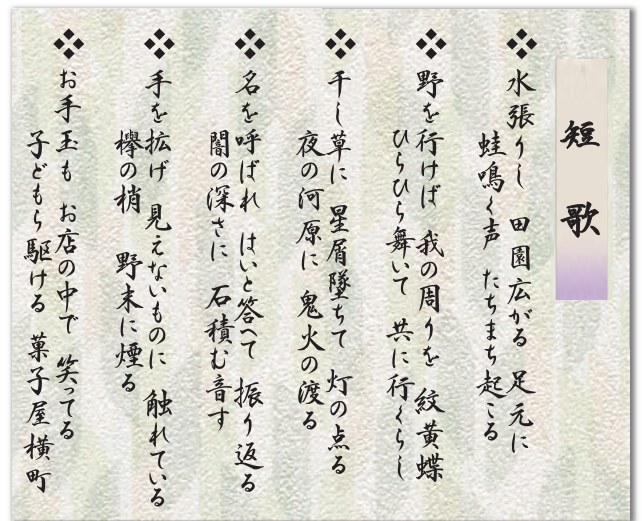 短歌
水張りし 田園広がる 足元に
蛙鳴く声 たちまち起こる
野を行けば 我の周りを 紋黄蝶
ひらひら舞いて 共に行くらし
干し草に 星屑墜ちて 灯の点る
夜の河原に 鬼火の渡る
名を呼ばれ はいと答へて 振り返る
闇の深さに 石積む音す
手を拡げ 見えないものに 触れている
欅の梢 野末に煙る
お手玉も お店の中で 笑ってる
子どもら駆ける 菓子屋横町